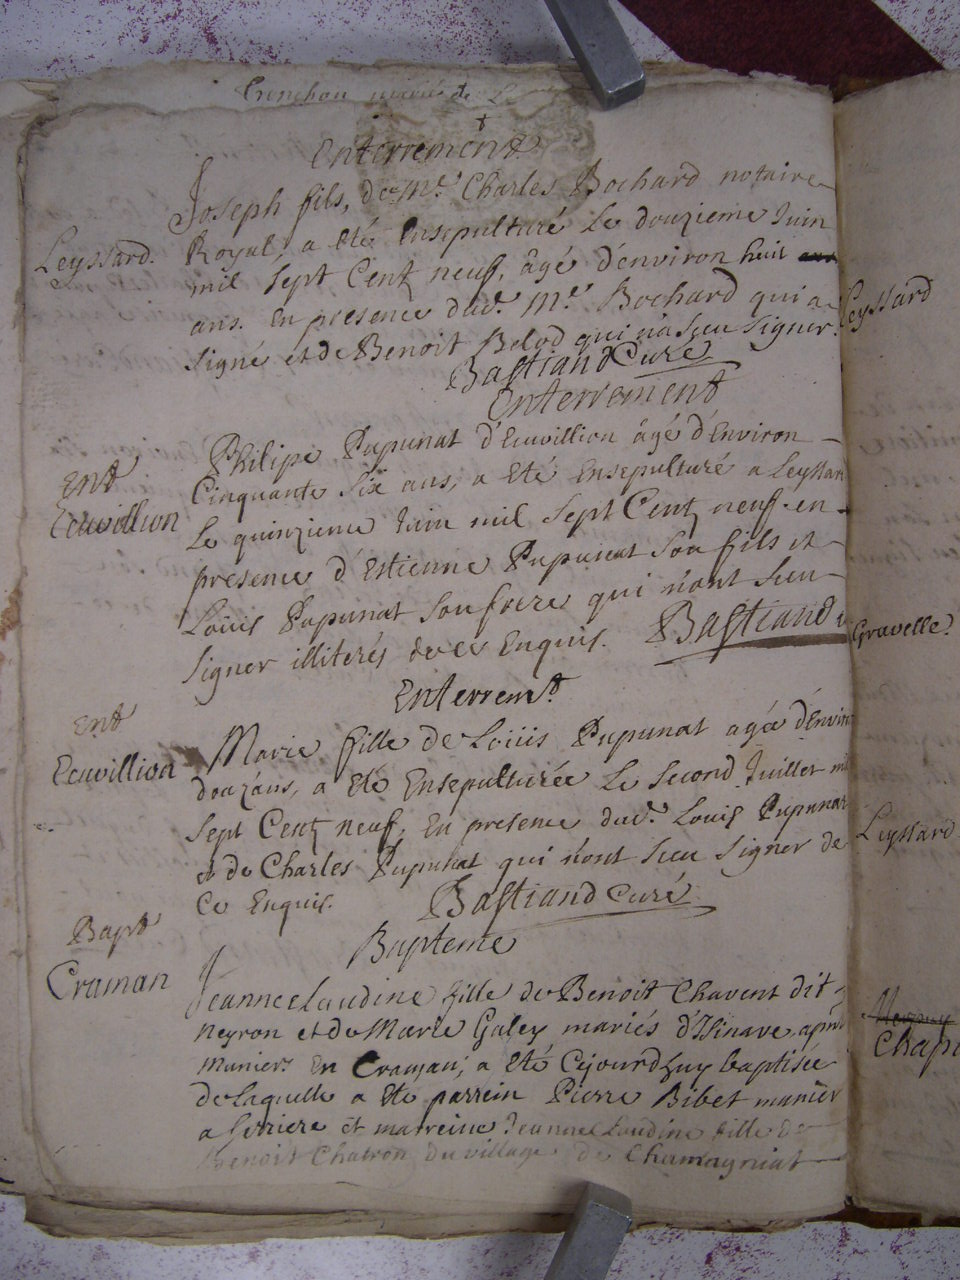 Crenchou mariés de
Enterrement
Leyssard.
Joseph fils, de Mr. Charles Bochard notaire
Royal, a eté Ensepulturé Le douzieme Juin
mil sept Cent neuf, âgé d'environ huit
ans. En presence dud. Mr. Bochard qui a
signé et de Benoit Belod qui n'a sceu signer.
Bastiand Curé
Enterrement
Ent
Ecuvillion
Philipe Pupunat d'Ecuvillion âgé d'Environ
Cinquante six ans, a eté Ensepulturé a Leyssard
Le quinzieme Juin mil sept Cent neuf en
presence d'Estienne Pupunat son fils et
Loüis Pupunat son frere qui n'ont sceu
signer illiterés de ce Enquis. Bastiand
Enterremt
Ent
Ecuvillion
Marie fille de Loüis Pupunat agée d'Environ
douz'ans, a eté Ensepulturée Le second Juillet mil
sept Cent neuf, En presence dud. Louis Pupunat
et de Charles Pupunat qui n'ont sceu signer de
Ce Enquis. Bastiand Curé
Bapteme
Bapt
Craman
Jeanne Laudine fille de Benoit Chavent dit
Neyron et de Marie Galey mariés d'Isinave,
muniers En Craman, a eté Cejourdhuy baptisée
de Laquelle a eté parrein Pierre Bibet munier
a Serriere et marreine Jeanne Laudine fille de
Benoit Chatron du village de Chamagniat
Leyssard
Gravelle
Leyssard
Chap